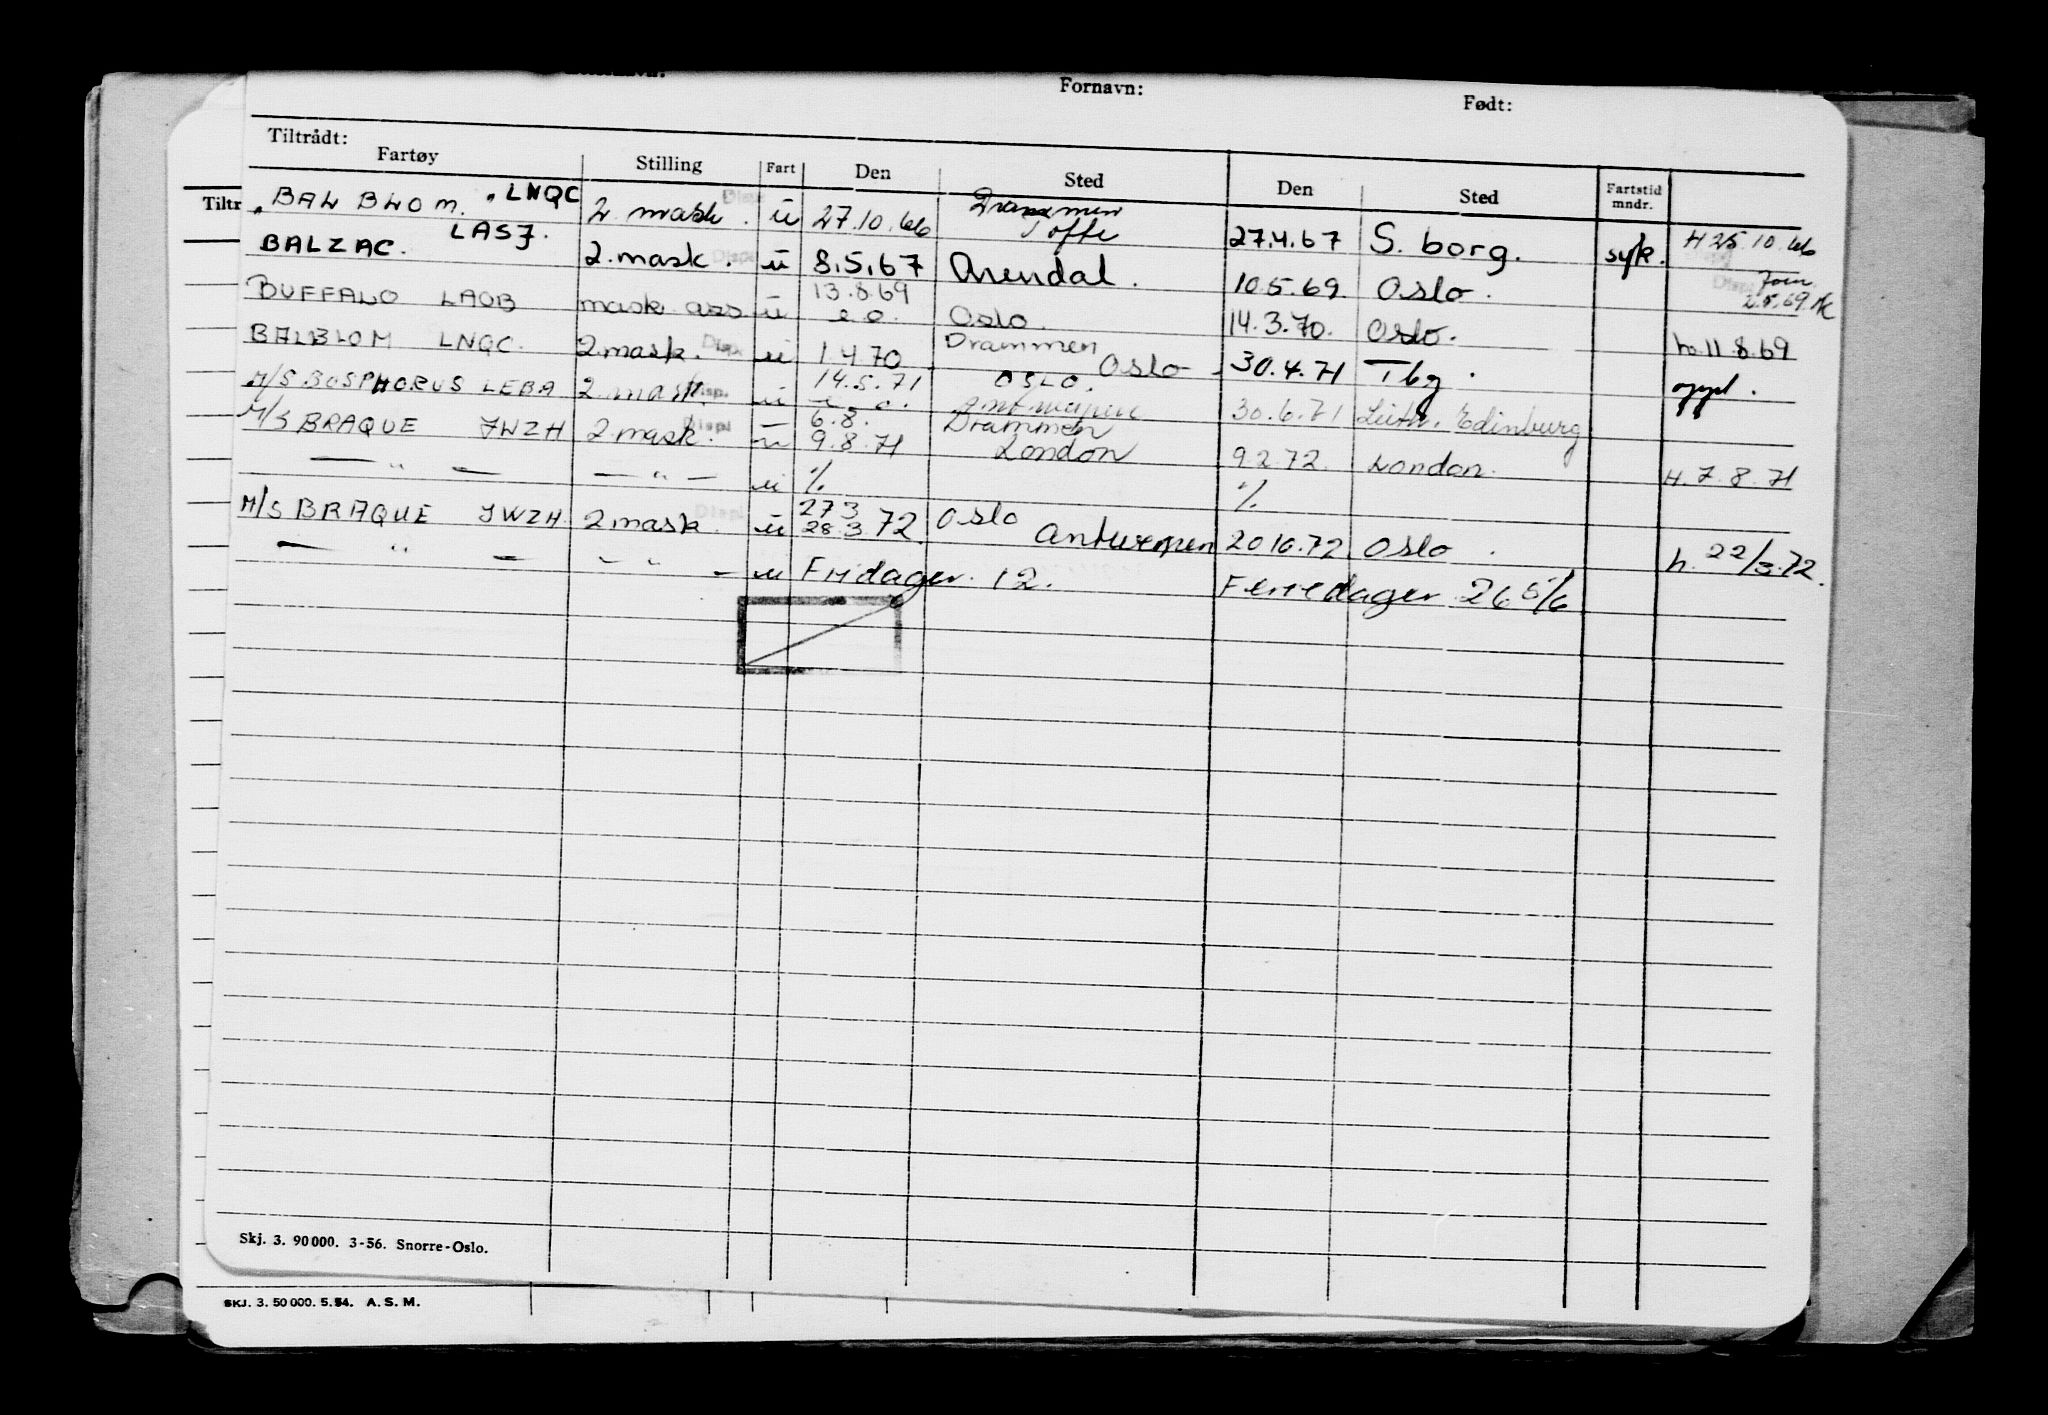 Fornavn: Født:
Tiltrådt:
Fartøy Stilling Fart Den Sted Den Sted Fartstid mndr.
Tiltr
"BALBLOM. "LNQC 2. mask. u 27.10.66 Drammen Tofte 27.4.67 S. borg. syk. H 25.10.66
BALZAC. LASJ. 2. mask. u 8.5.67 Arendal. 10.5.69 Oslo. 2.5.69
BUFFALO LAOB mask. ass u 13.8.69 e.o. Oslo. 14.3.70. Oslo. h. 11.8.69
BALBLOM LNQC. 2 mask. u 1.4.70 Drammen Oslo 30.4.71 Tbg. oppl.
M/S BOSPHORUS LEBA 2 mask. u 14.5.71 e.o. OSLO. Antwerpen 30.6.71 Leith, Edinburg
M/S BRAQUE JWZH 2. mask. u 6.8. 9.8.71 Drammen London 9.2.72. London. H. 7.8.71
— " — — " — u % %
M/S BRAQUE JWZH 2 mask. u 27.3 28.3.72. Oslo Antwerpen 20.10.72. Oslo. h. 22/3.72.
— " — — " — u Fridager. 12. Feriedager 26 5/6
Skj. 3. 90000. 3-56. Snorre-Oslo.
SKJ. 3. 50 000. 5. 54. A. S. M.